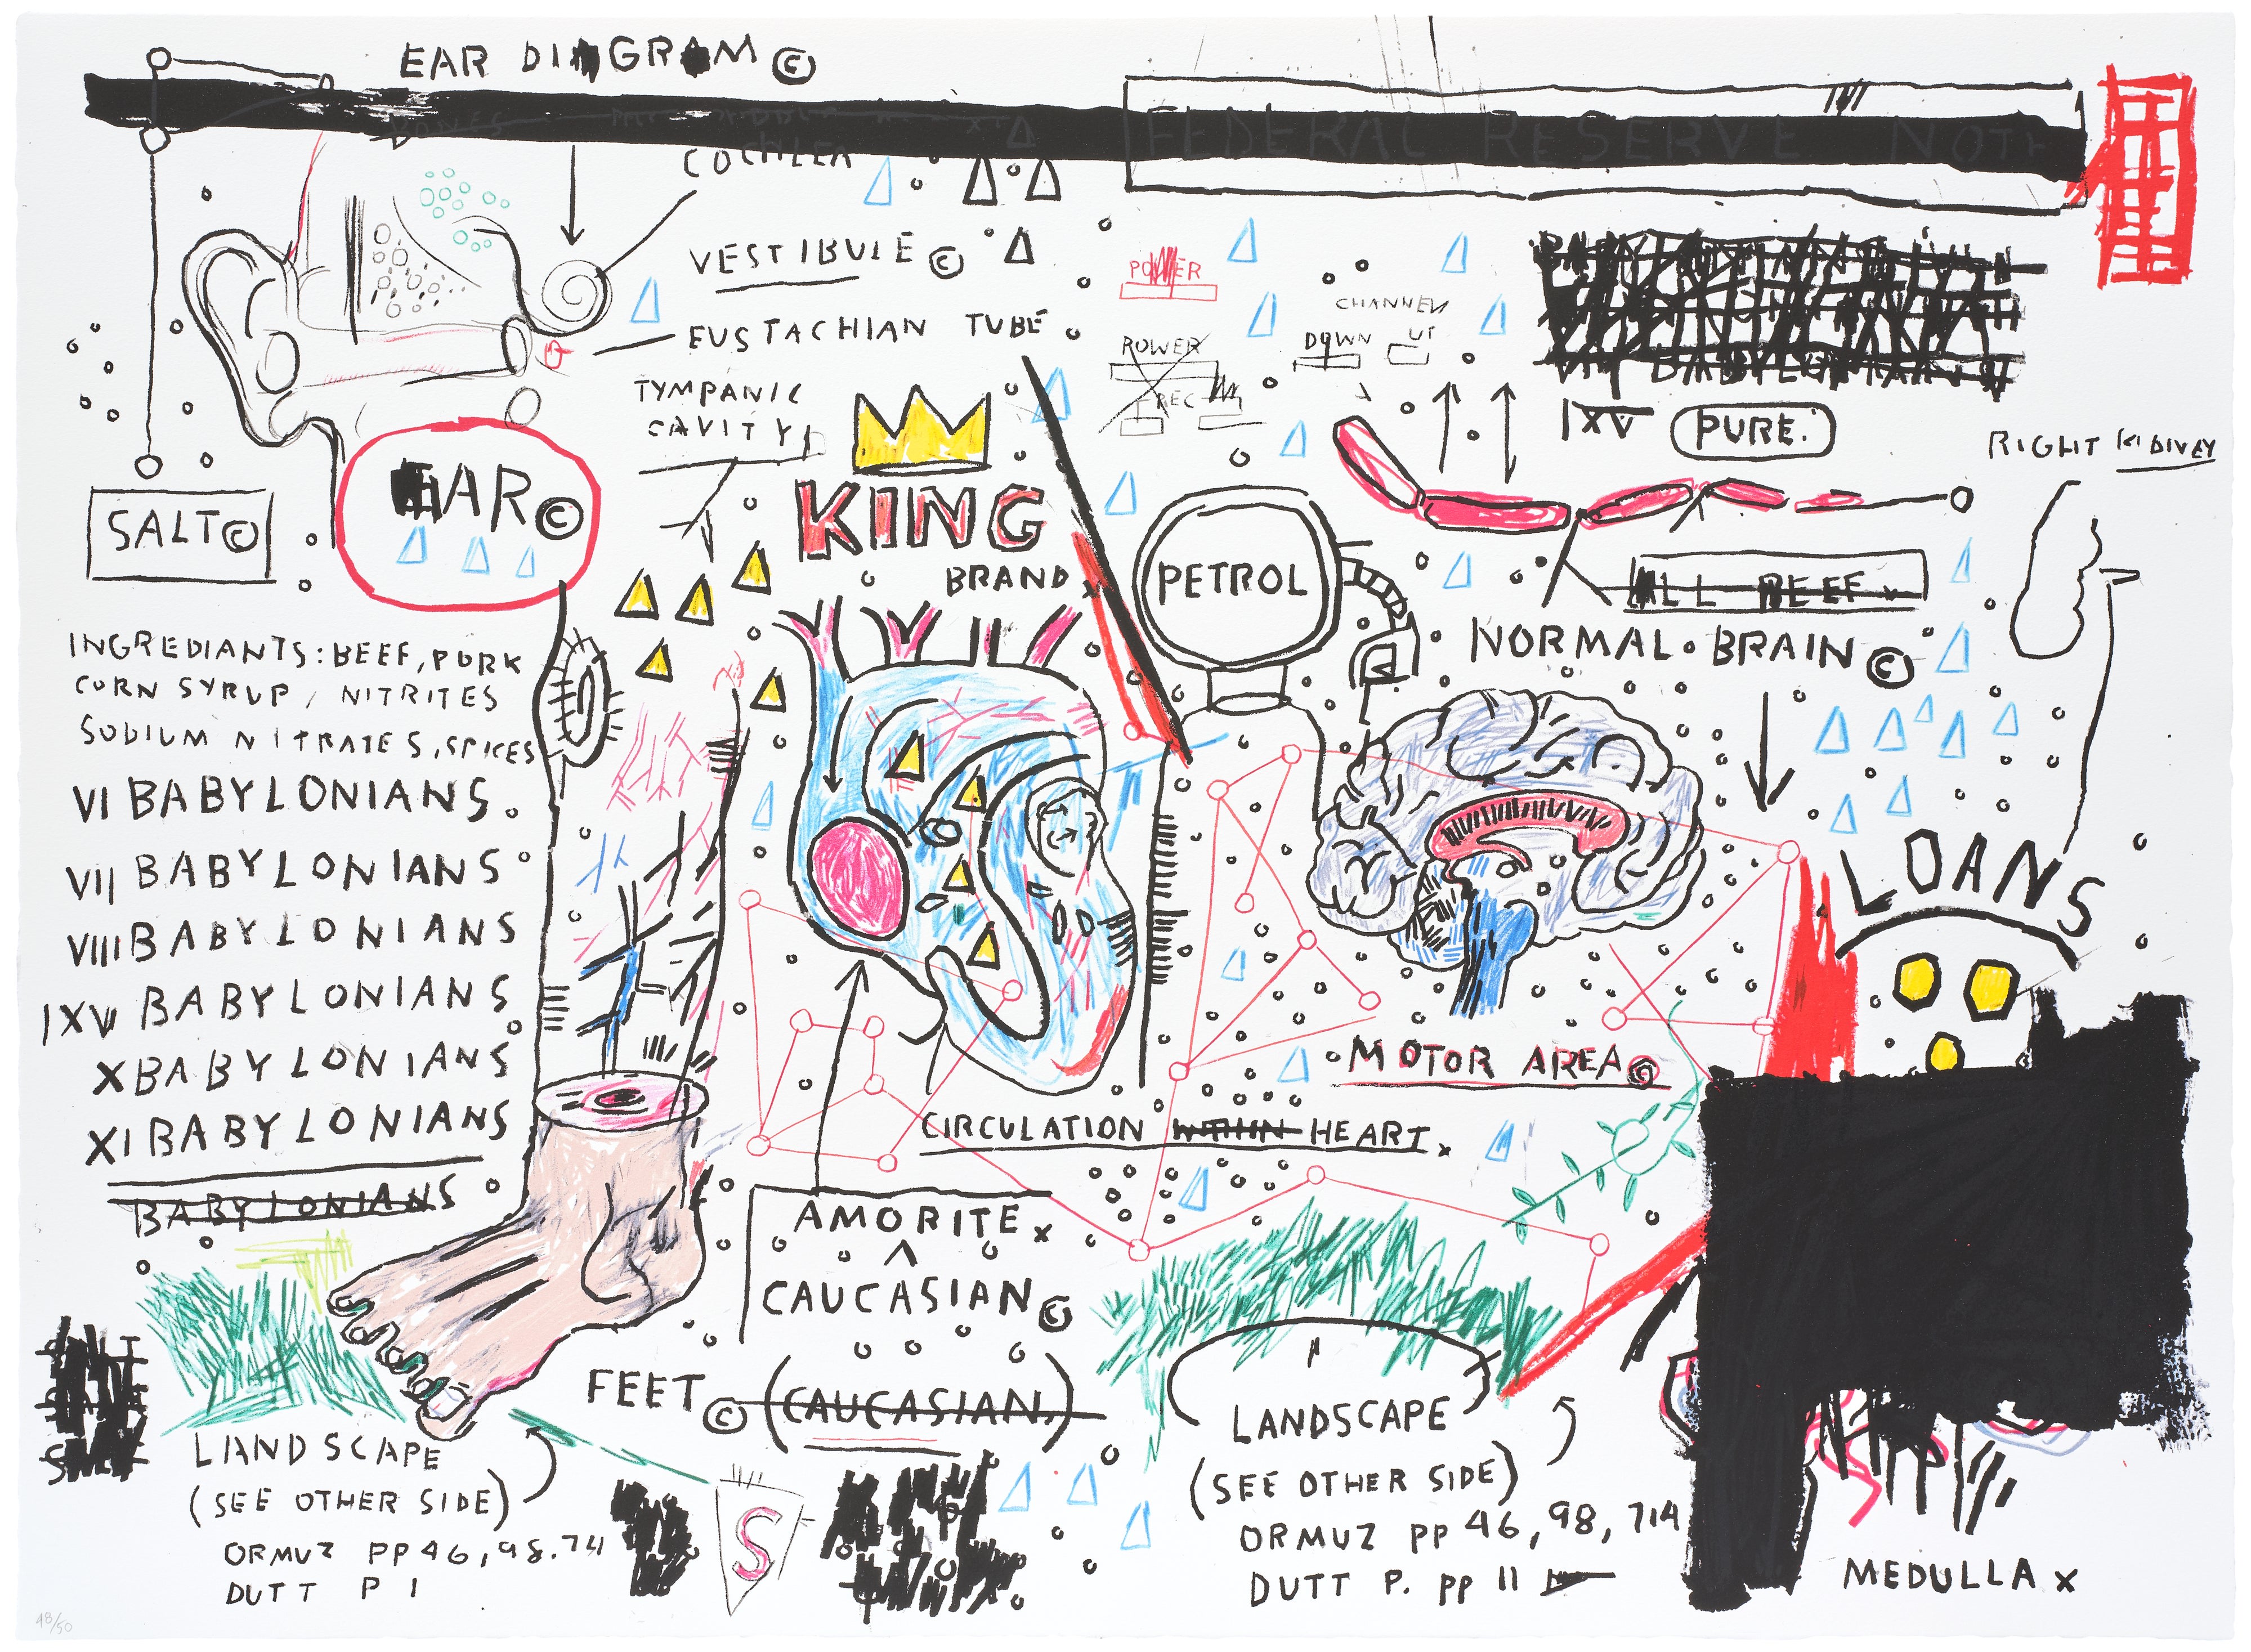 EAR DIAGRAM ©
COCHLEA
FEDERAL RESERVE NOTE
VESTIBULE ©
EUSTACHIAN TUBE
TYMPANIC
CAVITY
POWER
POWER
REC
CHANNEL
DOWN UP
IXV PURE.
RIGHT KIDNEY
EAR ©
SALT ©
KING
BRAND x
PETROL
ALL BEEF x
NORMAL BRAIN ©
INGREDIANTS: BEEF, PORK
CORN SYRUP, NITRITES
SODIUM NITRATES, SPICES
VI BABYLONIANS
VII BABYLONIANS
VIII BABYLONIANS
IXV BABYLONIANS
X BABYLONIANS
XI BABYLONIANS
BABYLONIANS
LOANS
MOTOR AREA ©
CIRCULATION WITHIN HEART x
AMORITE x
CAUCASIAN ©
FEET © (CAUCASIAN.)
LANDSCAPE
(SEE OTHER SIDE)
ORMUZ PP 46, 98. 74
DUTT P 1
S
LANDSCAPE
(SEE OTHER SIDE)
ORMUZ PP 46, 98, 714
DUTT P. PP 11
MEDULLA x
48/50